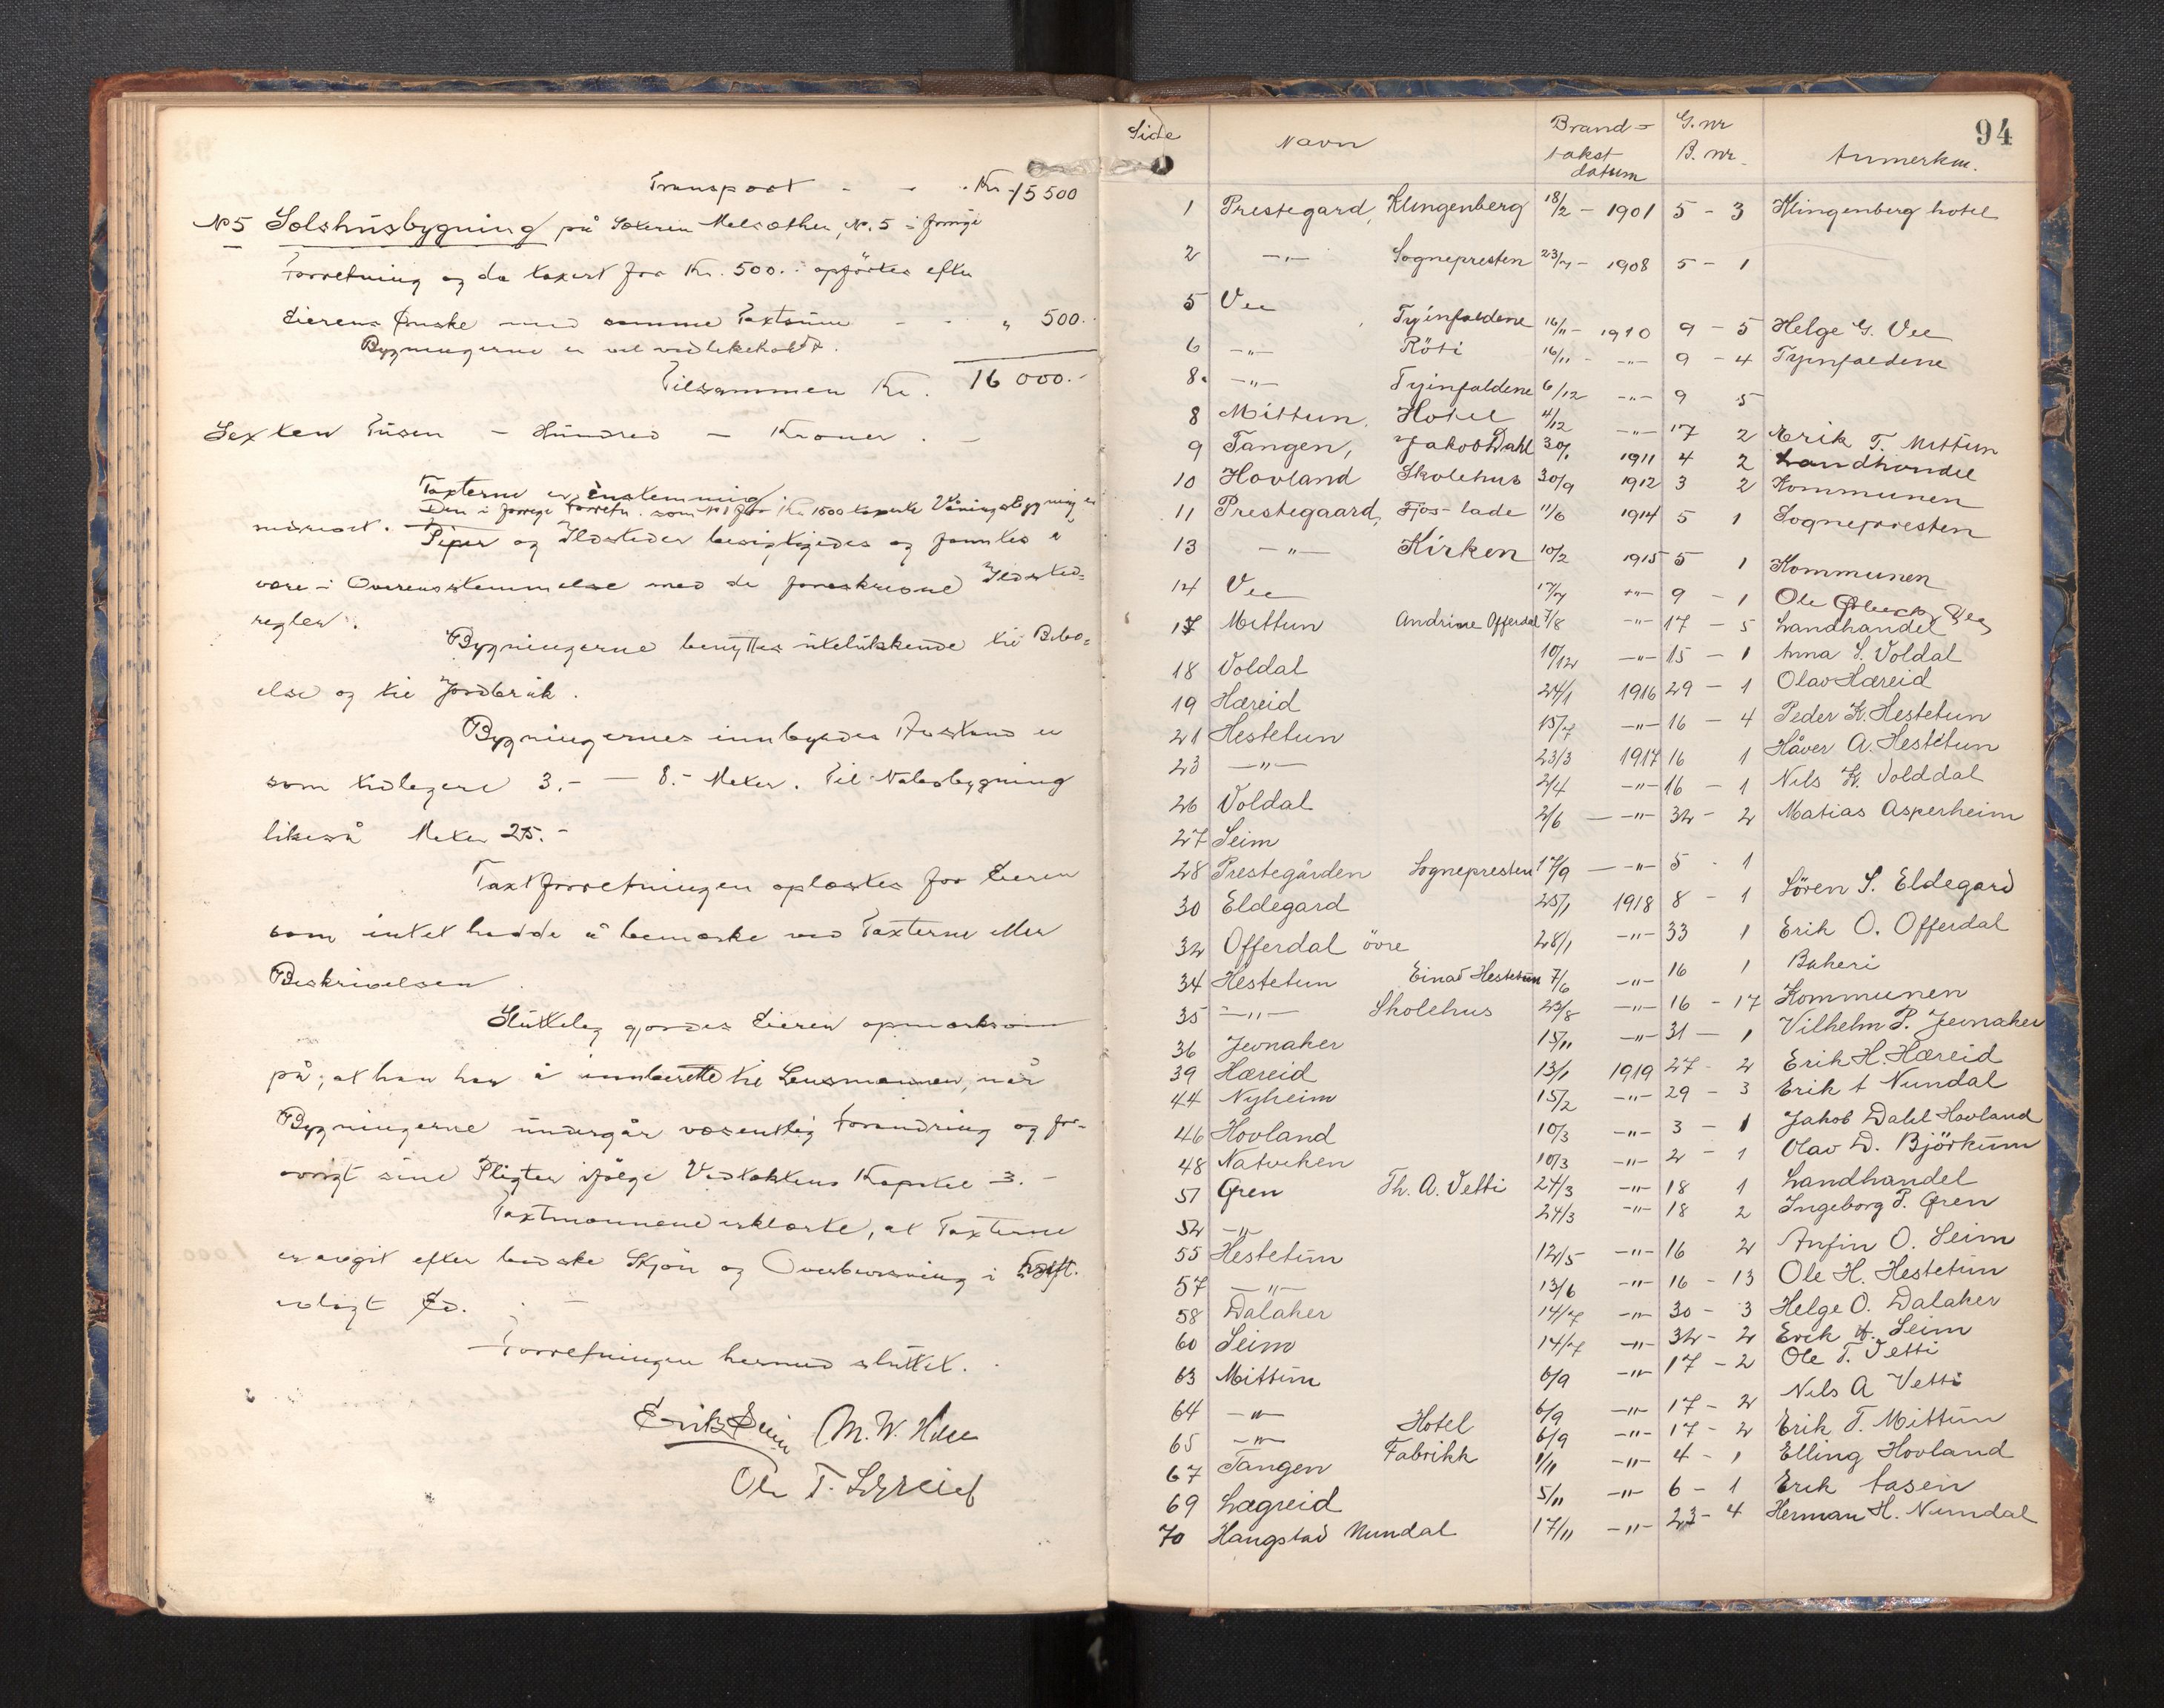 Transport - - . Kr 15 500
No 5 Selshusbygning på Sæteren Melsæther, No. 5 i forrige
Forretning og da taxert for Kr. 500.- opförtes efter
Eierens Ønske med samme Taxtsum - - „ 500.-
Bygningerne er vel vedlikeholdt.
Tilsammen Kr. 16 000.-
Sexten Tusen - Hundred - Kroner . -
Taxterne er enstemmig.
Den i forrige Forretn. som No 1 for Kr 1500 taxerte Våningsbygning er
nedrevet. Piper og Ildsteder besigtigedes og fantes å
være i Overensstemmelse med de foreskrevne Ildsted-
regler.
Bygningerne benyttes utelukkende til Bebo-
else og til Jordbruk.
Bygningernes innbyrdes Avstand er
som tidligere 3.- — 8.- Meter. Til Nabobygning
likeså Meter 25.-
Taxtforretningen oplæstes for Eieren
som intet hadde å bemærke ved Taxterne eller
Beskrivelsen
Sluttelig gjordes Eieren opmærksom
på, at han har å innberette til Lensmannen, når
Bygningerne undergår væsentlig Forandring og for-
övrigt sine Pligter ifölge Vedtaktens Kapitel 3.-
Taxtmennene erklærte, at Taxterne
er avgit efter bedste Skjön og Overbevisning i
avlagt Ed.
Forretningen hermed sluttet.
Erik Seim M. W.
Ole T. Lægreid
94
Side Navn Brand- takst datum G. nr B. nr. Anmerkn.
1 Prestegard, Klingenberg 18/2 - 1901 5 - 3 Klingenberg hotel
2 -„- Sognepresten 23/7 - 1908 5 - 1
5 Vee Tyinfaldene 16/11 - 1910 9 - 5 Helge G. Vee
6 -„- Röti 16/11 - -„- 9 - 4 Tyinfaldene
8. -„- Tyinfaldene 6/12 -„- 9 5
8 Mittun, Hotel 4/12 -„- 17 2 Erik T. Mittun
9 Tangen, Jakob Dahl 30/1 1911 4 2 Landhandel
10 Hovland Skolehus 30/9 1912 3 2 Kommunen
11 Prestegaard, Fjos-lade 11/6 1914 5 1 Sognepresten
13 -„- Kirken 10/2 1915 5 1 Kommunen
14 Vee 17/7 -„- 9 - 1 Ole Vee
17 Mittun Andrine Offerdal 7/8 -„- 17 - 5 Landhandel
18 Voldal 10/12 -„- 15 - 1 Anna S. Voldal
19 Hæreid 24/1 1916 29 - 1 Olav Hæreid
21 Hestetun 15/7 -„- 16 - 4 Peder K. Hestetun
23 -„- 23/3 1917 16 1 Håver A. Hestetun
26 Voldal 2/4 -„- 16 - 1 Nils K. Volddal
27 Seim 2/6 — -„- 32 - 2 Matias Asperheim
28 Prestegården Sognepresten 17/9 — -„- 5 - 1
30 Eldegard 25/1 1918 8 - 1 Sören S. Eldegard
32 Offerdal övre 28/1 -„- 33 1 Erik O. Offerdal
34 Hestetun Einar Hestetun 7/6 -„- 16 1 Bakeri
35 -„- Skolehus 23/8 -„- 16 - 17 Kommunen
36 Jevnaker 15/11 -„- 31 — 1 Vilhelm P. Jevnaker
39 Hæreid 13/1 1919 27 - 2 Erik H. Hæreid
44 Nyheim 15/2 -„- 29 - 3 Erik t Nundal
46 Hovland 10/3 -„- 3 - 1 Jakob Dahl Hovland
48 Natviken 10/3 -„- 2 - 1 Olav D. Björkum
51 Gren Th. A. Vetti 24/3 -„- 18 1 Landhandel
52 -„- 24/3 -„- 18 2 Ingeborg P. Gren
55 Hestetun 12/5 -„- 16 2 Anfin O. Seim
57 -„- 13/6 -„- 16 - 13 Ole H. Hestetun
58 Dalaker 14/7 -„- 30 - 3 Helge O. Dalaker
60 Seim 14/7 -„- 32 - 2 Erik H. Seim
63 Mittun 6/9 -„- 17 - 2 Ole T. Vetti
64 -„- 6/9 -„- 17 - 2 Nils A Vetti
65 -„- Hotel 6/9 -„- 17 - 2 Erik T. Mittun
67 Tangen Fabrikk 1/11 -„- 4 - 1 Elling Hovland
69 Lægreid 5/11 -„- 6 - 1 Erik Aasen
70 Haugstad Nundal 17/11 -„- 23 - 4 Herman H. Nundal